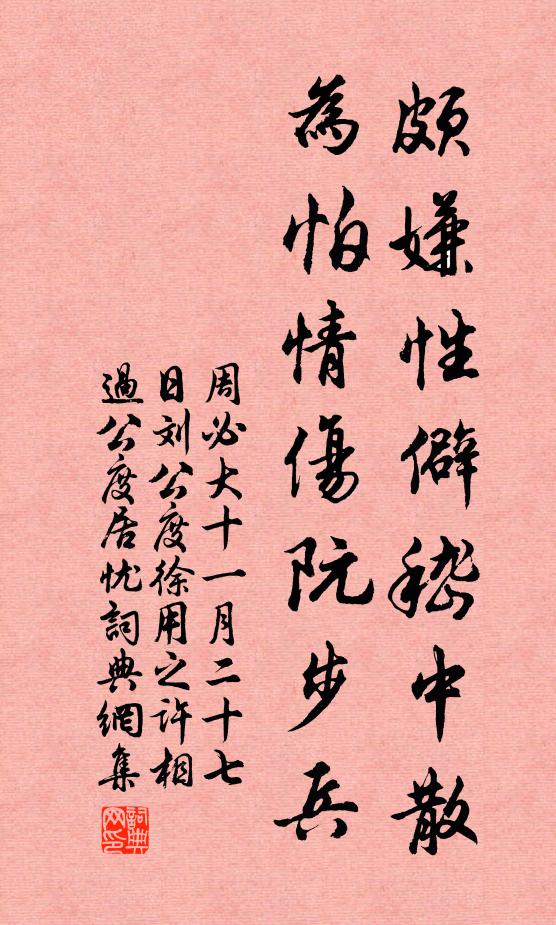 頗嫌性僻嵇中散
為怕情傷阮步兵
周必大十一月二十七
日刘公度徐用之许相
過公度居忧詞典網集
詞典网印